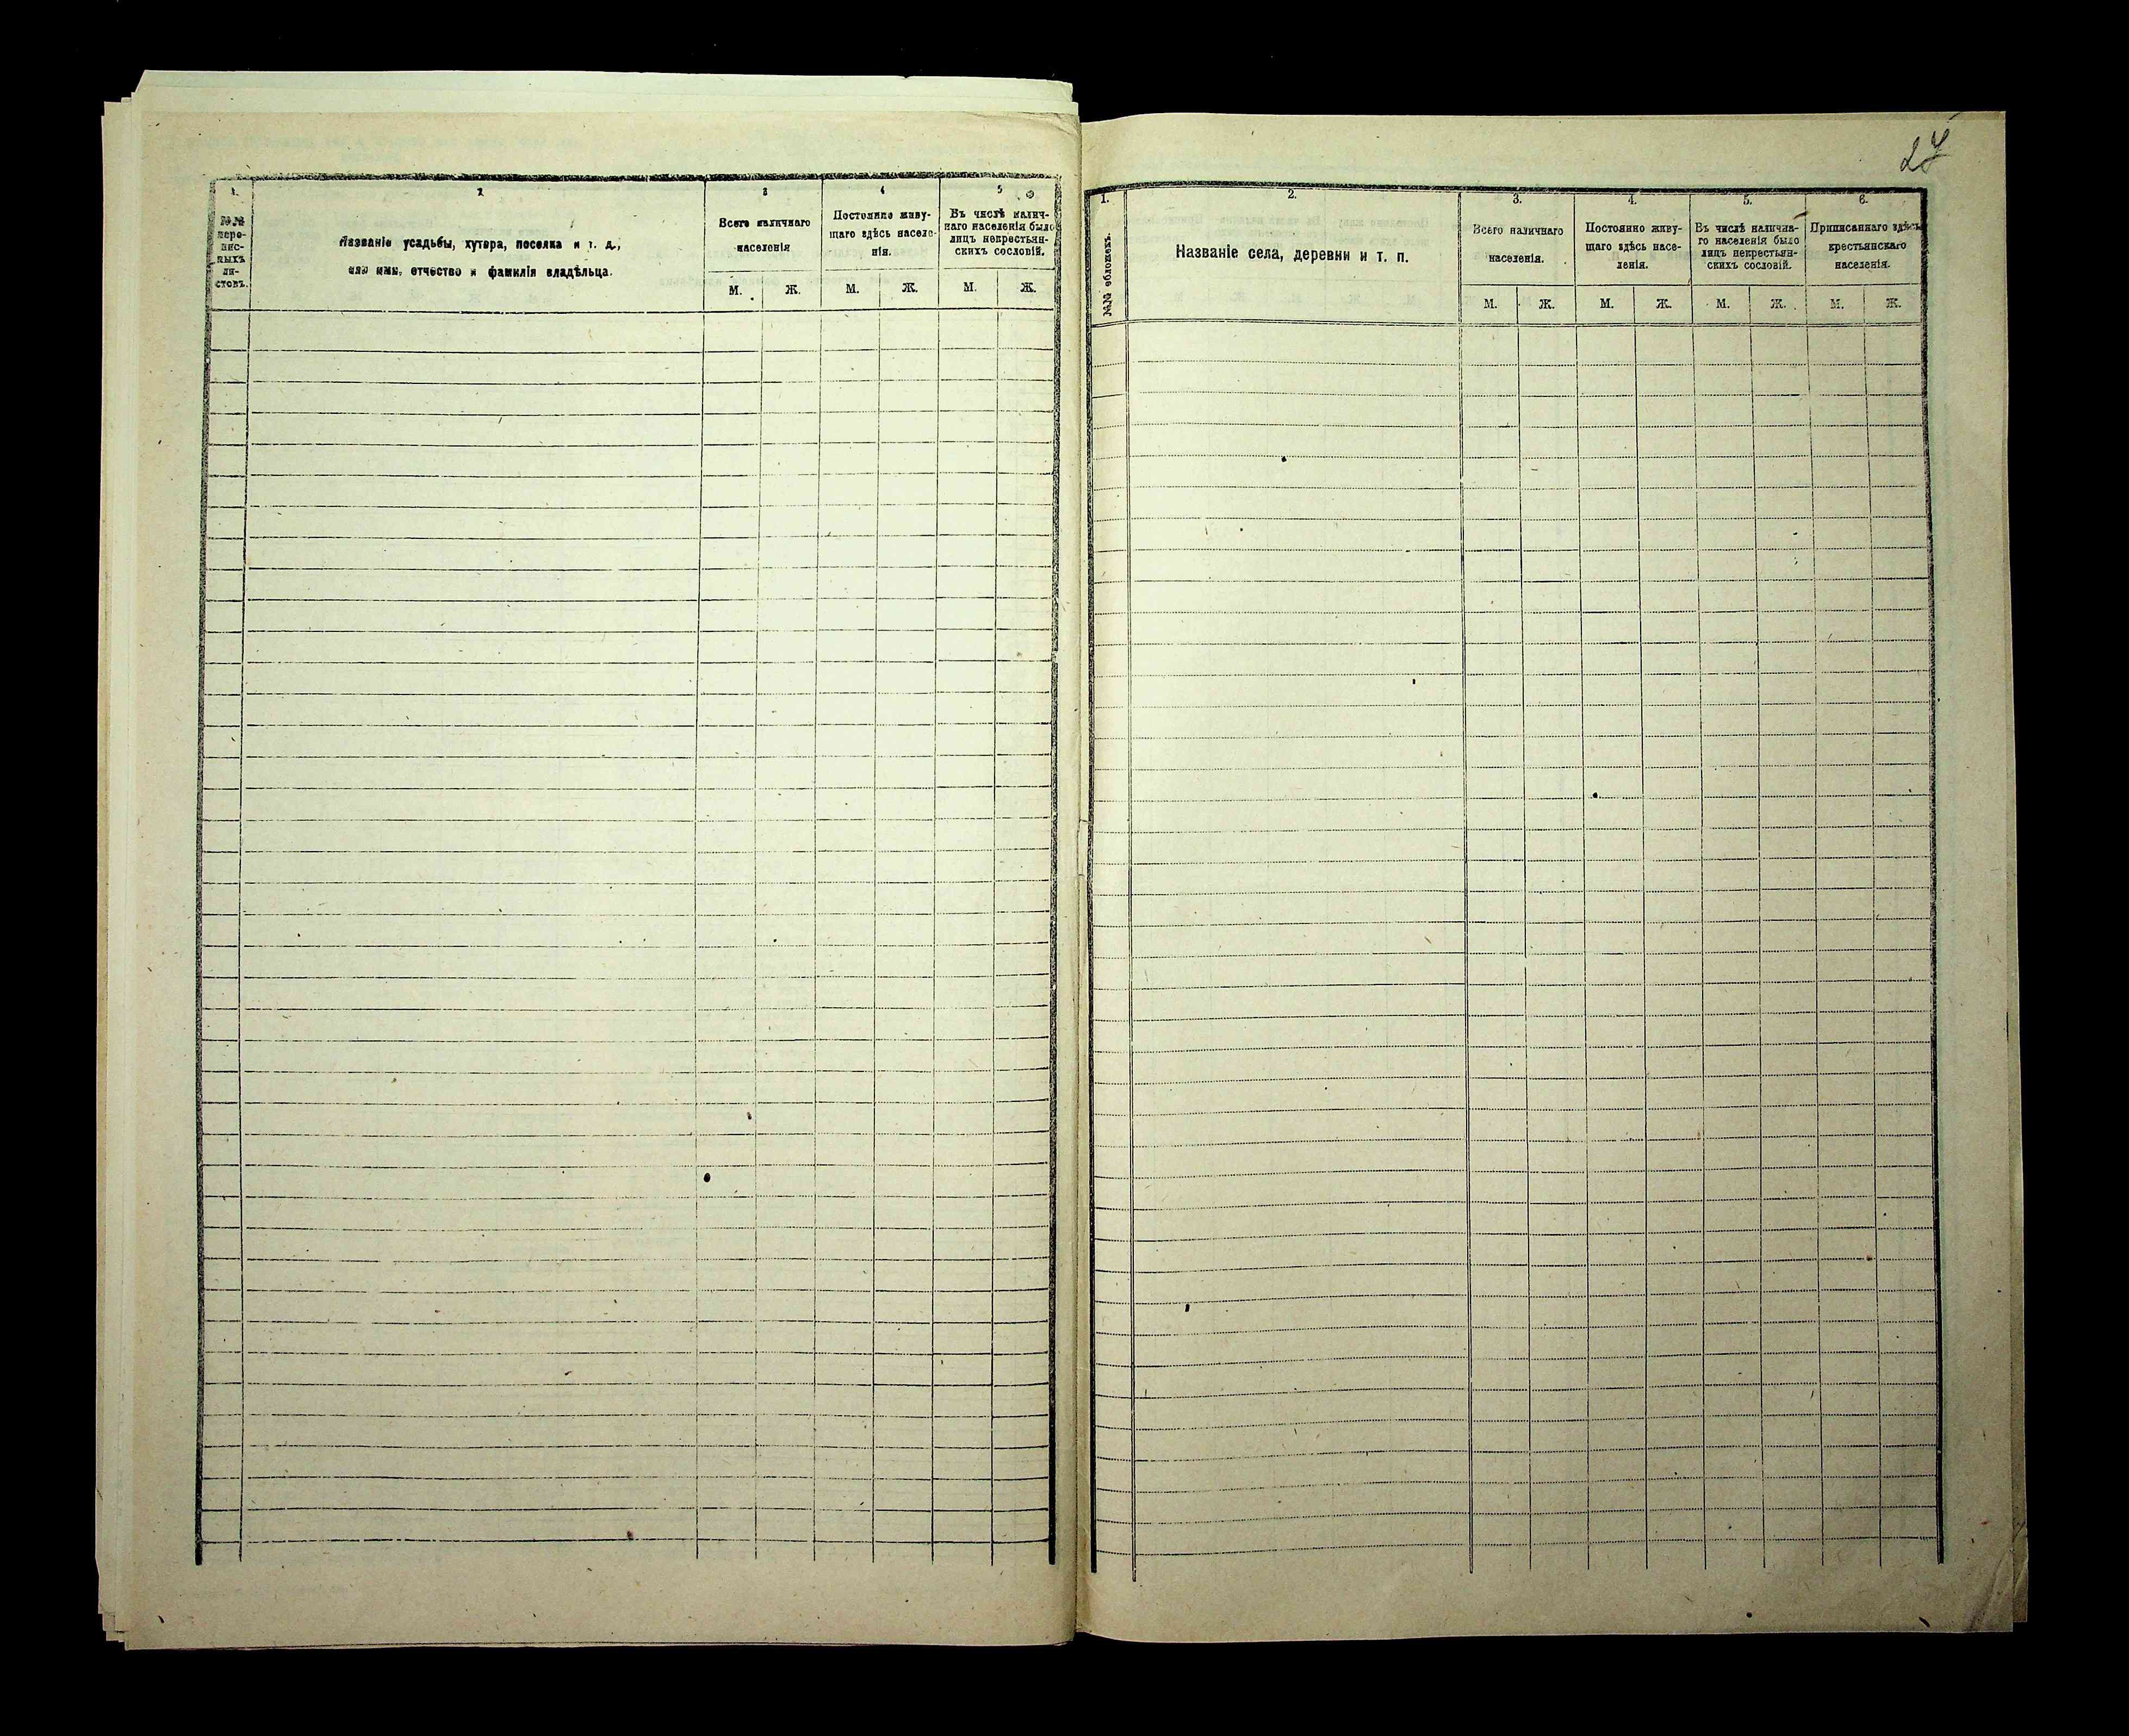 1.
№№
пере-
пис-
ныхъ
ли-
стовъ.
2
Названіе усадьбы, хутора, поселка и т. д.,
или имя, отчество и фамилія владѣльца.
3
Всего наличнаго
населенія
М. Ж.
4
Постоянно живу-
щаго здѣсь населе-
нія.
М. Ж.
5
Въ числѣ налич-
наго населенія было
лицъ некрестьян-
скихъ сословій.
М. Ж.
27
1.
№№ обложекъ.
2.
Названіе села, деревни и т. п.
3.
Всего наличнаго
населенія.
М. Ж.
4.
Постоянно живу-
щаго здѣсь насе-
ленія.
М. Ж.
5.
Въ числѣ налична-
го населенія было
лицъ некрестьян-
скихъ сословій.
М. Ж.
6.
Приписаннаго здѣсь
крестьянскаго
населенія.
М. Ж.